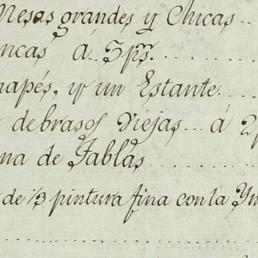 Mesas grandes y Chicas..
ncas á 5 ps.
napés, y un Estante.
debrasos Viejas... á 2p
na de Tablas
de 1/3 pintura fina con la Ym